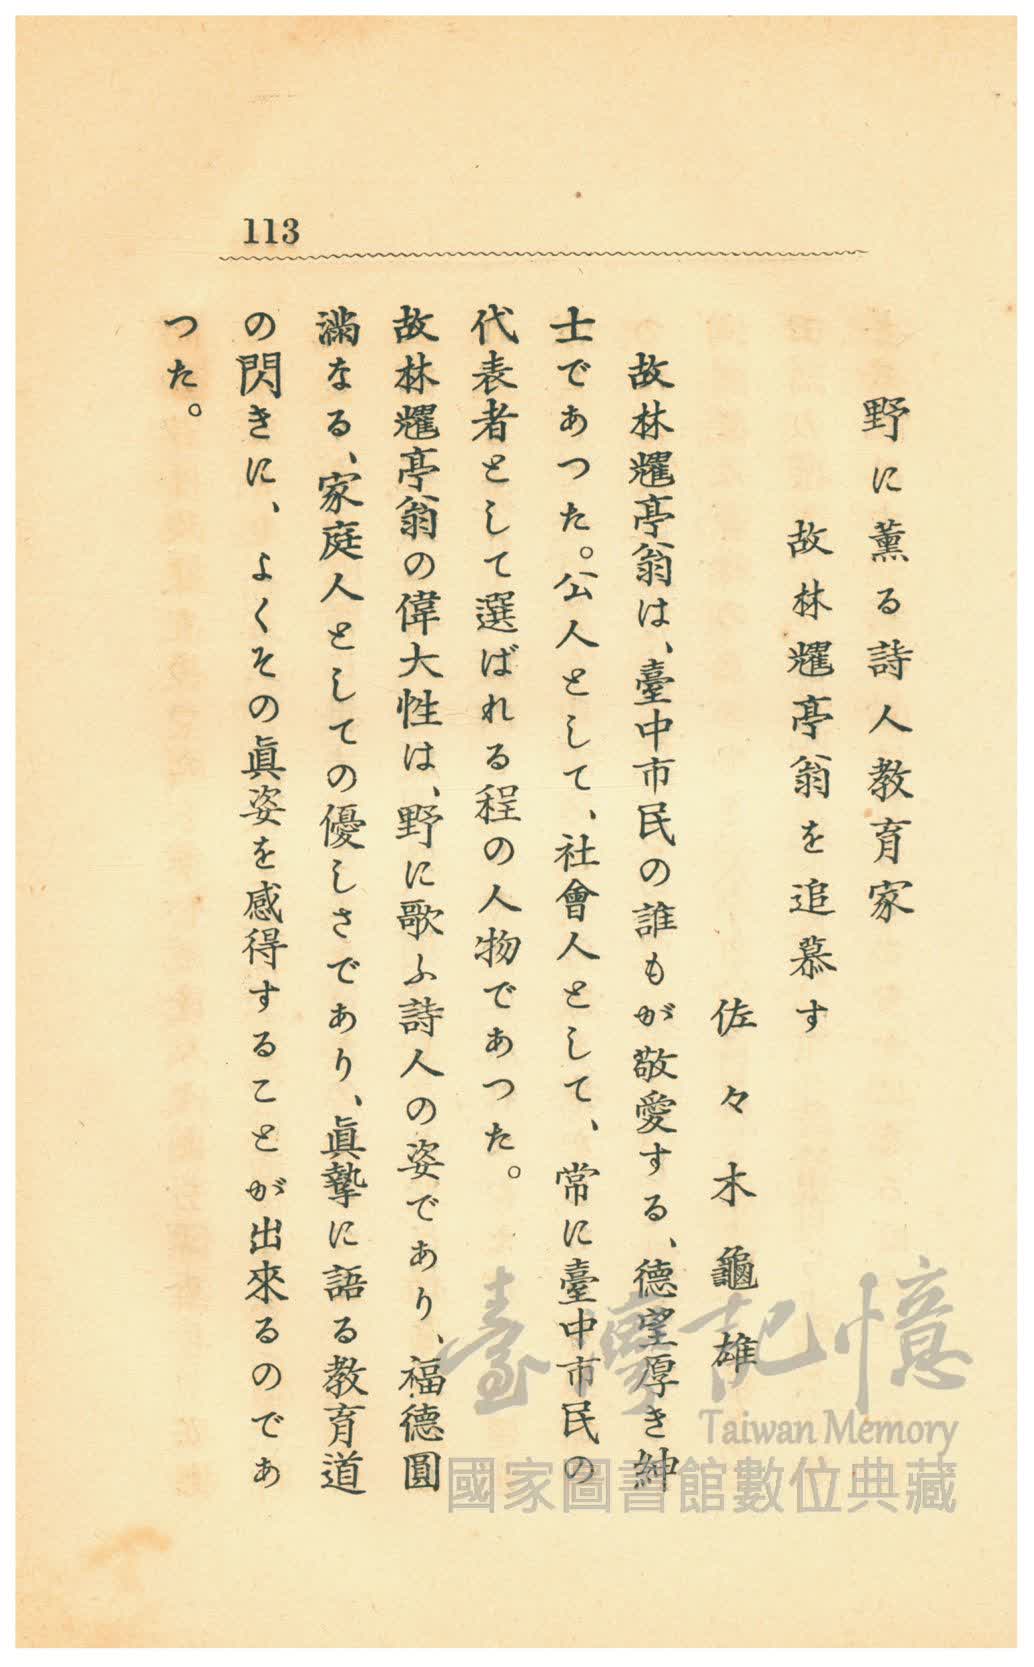 113
野に薫る詩人教育家
故林耀亭翁を追慕す
佐々木龜雄
故林耀亭翁は、臺中市民の誰もが敬愛する、德望厚き紳
士であつた。公人として、社會人として、常に臺中市民の
代表者として選ばれる程の人物であつた。
故林耀亭翁の偉大性は、野に歌ふ詩人の姿であり、福德圓
滿なる、家庭人としての優しさであり、眞摯に語る教育道
の閃きに、よくその眞姿を感得することが出來るのであ
つた。
臺灣記憶
Taiwan Memory
國家圖書館數位典藏